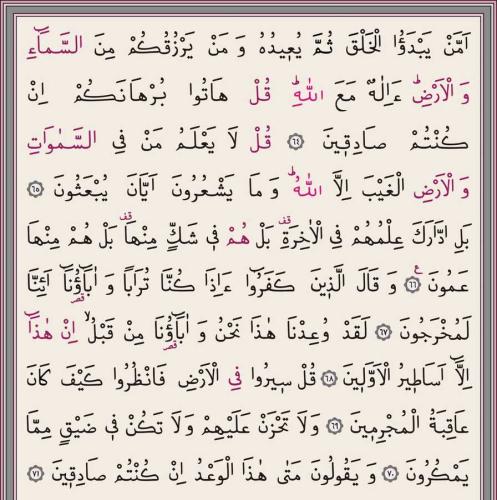 اَمَّنْ يَبْدَؤُا الْخَلْقَ ثُمَّ يُعٖيدُهُ وَ مَنْ يَرْزُقُكُمْ مِنَ السَّمَٓاءِ
وَ الْاَرْضِؕ ءَاِلٰهٌ مَعَ اللّٰهِؕ قُلْ هَاتُوا بُرْهَانَكُمْ اِنْ
كُنْتُمْ صَادِقٖينَ ﴿٦٤﴾ قُلْ لَا يَعْلَمُ مَنْ فِي السَّمٰوَاتِ
وَ الْاَرْضِ الْغَيْبَ اِلَّا اللّٰهُؕ وَ مَا يَشْعُرُونَ اَيَّانَ يُبْعَثُونَ ﴿٦٥﴾
بَلِ ادَّارَكَ عِلْمُهُمْ فِي الْاٰخِرَةِࣞ بَلْ هُمْ فٖي شَكٍّ مِنْهَاࣞ بَلْ هُمْ مِنْهَا
عَمُونَࣖ ﴿٦٦﴾ وَ قَالَ الَّذٖينَ كَفَرُٓوا ءَاِذَا كُنَّا تُرَابًا وَ اٰبَٓاؤُنَٓا اَئِنَّا
لَمُخْرَجُونَ ﴿٦٧﴾ لَقَدْ وُعِدْنَا هٰذَا نَحْنُ وَ اٰبَٓاؤُنَا مِنْ قَبْلُۙ اِنْ هٰذَٓا
اِلَّٓا اَسَاطٖيرُ الْاَوَّلٖينَ ﴿٦٨﴾ قُلْ سٖيرُوا فِي الْاَرْضِ فَانْظُرُوا كَيْفَ كَانَ
عَاقِبَةُ الْمُجْرِمٖينَ ﴿٦٩﴾ وَلَا تَحْزَنْ عَلَيْهِمْ وَلَا تَكُنْ فٖي ضَيْقٍ مِمَّا
يَمْكُرُونَ ﴿٧٠﴾ وَ يَقُولُونَ مَتٰى هٰذَا الْوَعْدُ اِنْ كُنْتُمْ صَادِقٖينَ ﴿٧١﴾